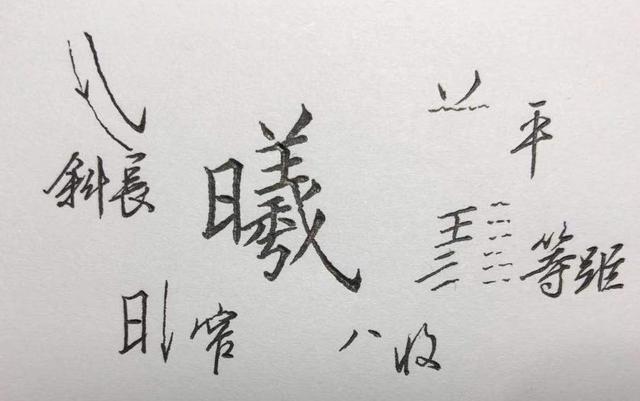 平
斜長
曦
王
二
等距
日 窄
八 收